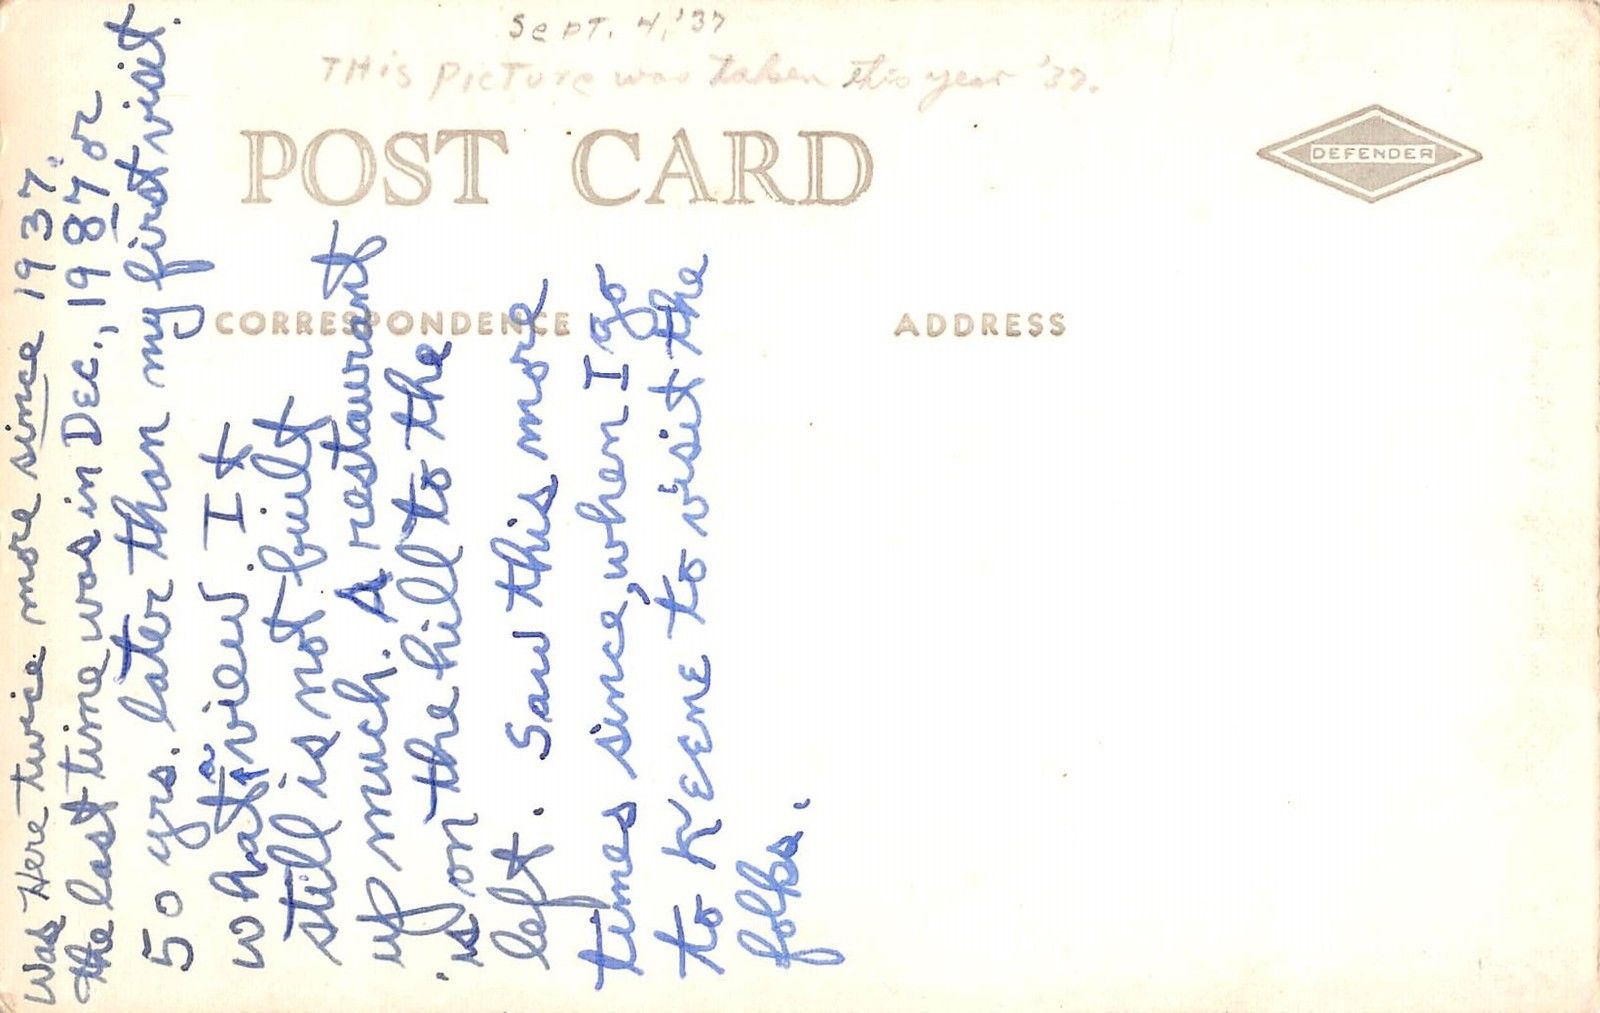 Sept. 4, '37
This Picture was taken this year '37.
POST CARD
DEFENDER
CORRESPONDENCE
ADDRESS
Was Here twice more since 1937.
the last time was in Dec., 1987 or
50 yrs. later than my first visit.
what a view. It
still is not built
up much. A restaurant
is on the hill to the
left. Saw this more
times since, when I go
to Keene to visit the
folks.